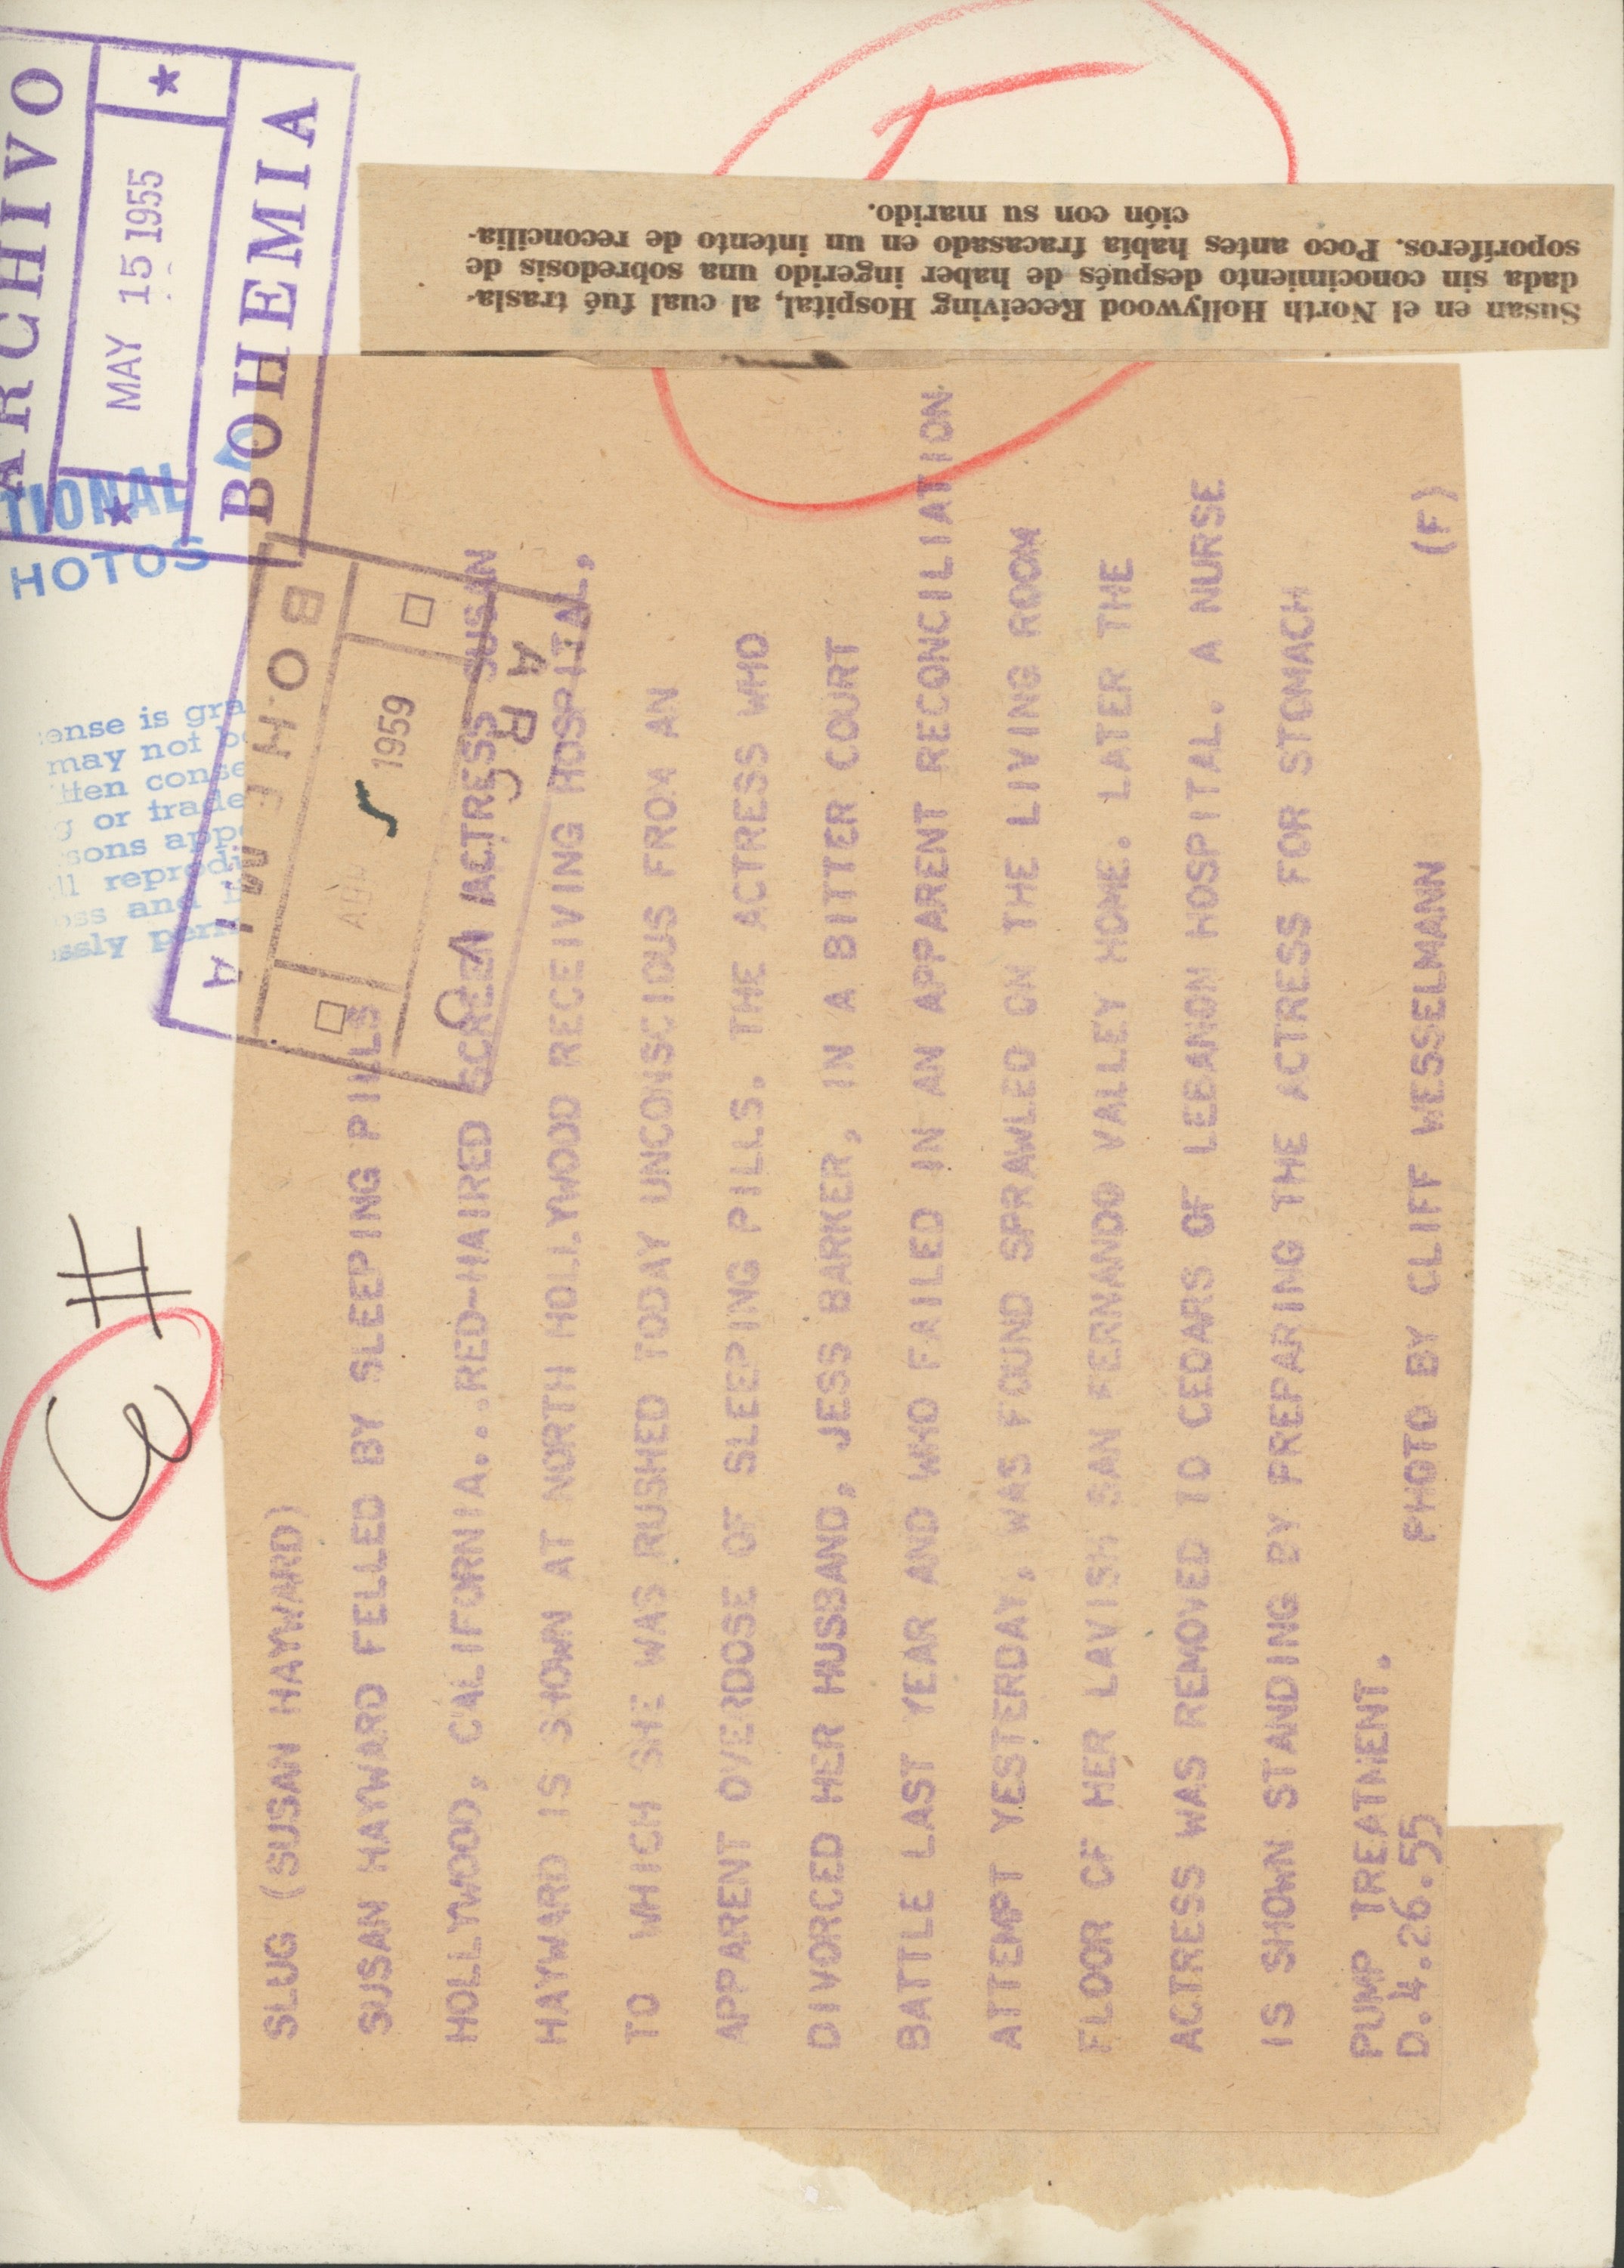 ARCHIVO
★ MAY 15 1955 ★
BOHEMIA
TIONAL
HOTOS
BOHEMIA
1959
ARC
ense is gra
may not b
tten conse
g or trade
sons appe
ll reprodu
oss and
ssly perm
Susan en el North Hollywood Receiving Hospital, al cual fué trasla-
dada sin conocimiento después de haber ingerido una sobredosis de
soporíferos. Poco antes había fracasado en un intento de reconcilia-
ción con su marido.
3 #
SLUG (SUSAN HAYWARD)
SUSAN HAYWARD FELLED BY SLEEPING PILLS
HOLLYWOOD, CALIFORNIA...RED-HAIRED SCREEN ACTRESS SUSAN
HAYWARD IS SHOWN AT NORTH HOLLYWOOD RECEIVING HOSPITAL,
TO WHICH SHE WAS RUSHED TODAY UNCONSCIOUS FROM AN
APPARENT OVERDOSE OF SLEEPING PILLS. THE ACTRESS WHO
DIVORCED HER HUSBAND, JESS BARKER, IN A BITTER COURT
BATTLE LAST YEAR AND WHO FAILED IN AN APPARENT RECONCILIATION
ATTEMPT YESTERDAY, WAS FOUND SPRAWLED ON THE LIVING ROOM
FLOOR OF HER LAVISH SAN FERNANDO VALLEY HOME. LATER THE
ACTRESS WAS REMOVED TO CEDARS OF LEBANON HOSPITAL. A NURSE
IS SHOWN STANDING BY PREPARING THE ACTRESS FOR STOMACH
PUMP TREATMENT.
D.4.26.55 PHOTO BY CLIFF WESSELMANN (F)